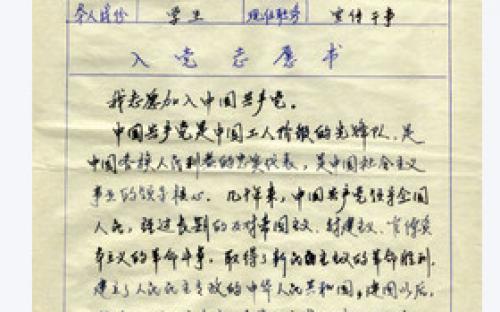 本人成份 学生 现任职务 宣传干事
入党志愿书
我志愿加入中国共产党。
中国共产党是中国工人阶级的先锋队，是
中国各族人民利益的忠实代表，是中国社会主义
事业的领导核心。几十年来，中国共产党领导全国
人民，经过长期的反对帝国主义、封建主义、官僚资
本主义的革命斗争，取得了新民主主义的革命胜利，
建立了人民民主专政的中华人民共和国，建国以后，